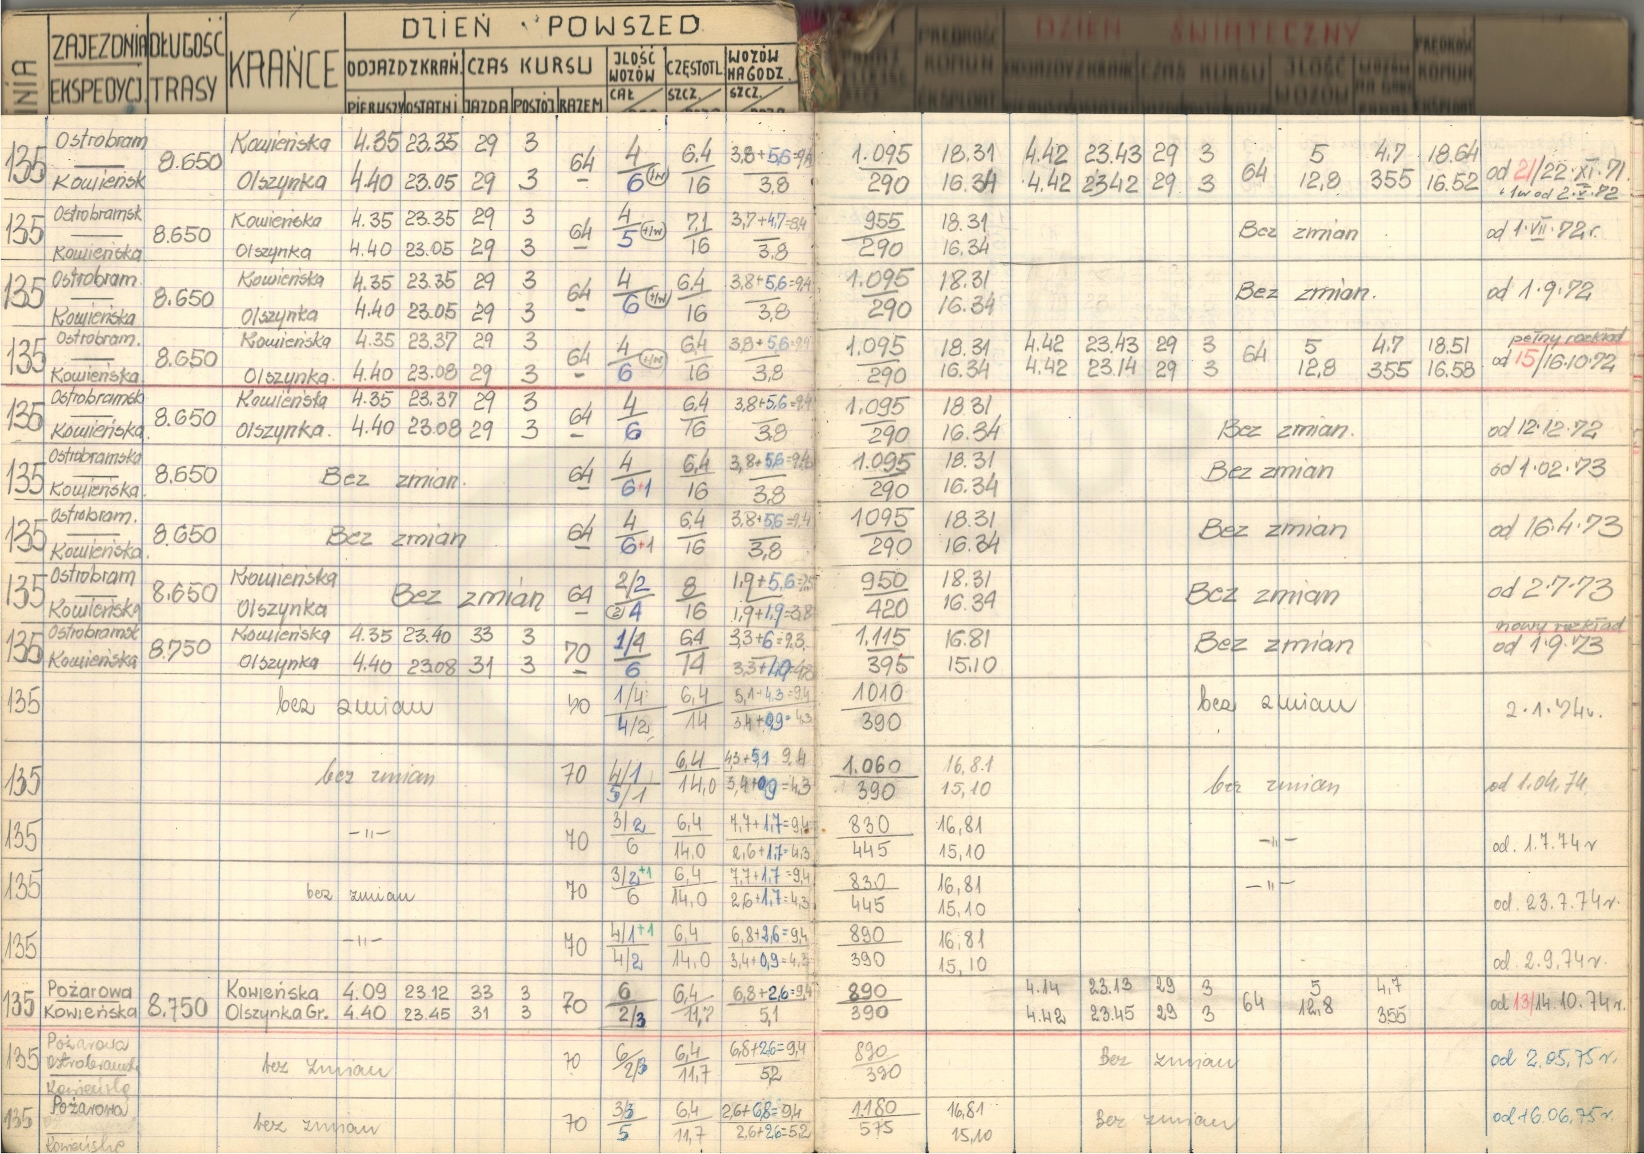 DZIEŃ POWSZED
DZIEŃ ŚWIĄTECZNY
NIA
ZAJEZDNIA
EKSPEDYCJ.
DŁUGOŚĆ
TRASY
KRAŃCE
ODJAZD Z KRAŃ.
CZAS KURSU
JLOŚĆ WOZÓW
CZĘSTOTL.
WOZÓW NA GODZ.
PIERWSZY OSTATNI JAZDA POSTÓJ RAZEM CAŁ SZCZ. SZCZ.
PRĘDKOŚĆ KOMUN
CZAS KURSU
135 Ostrobram 8.650 Kowieńska 4.35 23.35 29 3 64 4 6,4 3,8+5,6=9,4 1.095 18.31 4.42 23.43 29 3 64 5 4,7 18.64 od 21/22·XI·71.
Kowieńsk Olszynka 4.40 23.05 29 3 6 +1w 16 3,8 290 16.34 4.42 2342 29 3 12,8 355 16.52 +1w od 2·V·72
135 Ostrobramsk 8.650 Kowieńska 4.35 23.35 29 3 64 4 7,1 3,7+4,7=8,4 955 18.31 Bez zmian od 1·VII·72r.
Kowieńska Olszynka 4.40 23.05 29 3 5 +1w 16 3,8 290 16.34
135 Ostrobram. 8.650 Kowieńska 4.35 23.35 29 3 64 4 6,4 3,8+5,6=9,4 1.095 18.31 Bez zmian. od 1·9·72
Kowieńska Olszynka 4.40 23.05 29 3 6 +1w 16 3,8 290 16.34
135 Ostrobram. 8.650 Kowieńska 4.35 23.37 29 3 64 4 6,4 3,8+5,6=9,4 1.095 18.31 4.42 23.43 29 3 64 5 4,7 18.51 pełny rozkład
Kowieńska. Olszynka. 4.40 23.08 29 3 6 +1w 16 3,8 290 16.34 4.42 23.14 29 3 12,8 355 16.58 od 15/16·10·72
135 Ostrobramsk 8.650 Kowieńska 4.35 23.37 29 3 64 4 6,4 3,8+5,6=9,4 1.095 18 31 Bez zmian. od 12·12·72
Kowieńska. Olszynka. 4.40 23.08 29 3 6 16 3,8 290 16.34
135 Ostrobramska 8.650 Bez zmian. 64 4 6,4 3,8+5,6=9,4 1.095 18.31 Bez zmian od 1·02·73
Kowieńska. 6+1 16 3,8 290 16.34
135 Ostrobram. 8.650 Bez zmian 64 4 6,4 3,8+5,6=9,4 1095 18.31 Bez zmian od 16·4·73
Kowieńska. 6+1 16 3,8 290 16.34
135 Ostrobram 8.650 Kowieńska Bez zmian 64 2/2 8 1,9+5,6=7,5 950 18.31 Bez zmian od 2·7·73
Kowieńska Olszynka 2 4 16 1,9+1,9=3,8 420 16.34
135 Ostrobramsk 8.750 Kowieńska 4.35 23.40 33 3 70 1/4 6,4 3,3+6=9,3 1.115 16.81 Bez zmian nowy rozkład
Kowieńska Olszynka 4.40 23.08 31 3 6 14 395 15,10 od 1·9·73
135 bez zmian 70 1/4 6,4 5,1+4,3=9,4 1010 bez zmian 2·1·74r.
4/2 14 3,4+0,9=4,3 390
135 bez zmian 70 4/1 6,4 4,3+5,1 9,4 1.060 16,8.1 bez zmian od 1.04.74.
5/1 14,0 3,4+0,9=4,3 390 15,10
135 –"– 70 3/2 6,4 7,7+1,7=9,4 830 16,81 –"– od. 1.7.74r
6 14,0 2,6+1,7=4,3 445 15,10
135 bez zmian 70 3/2+1 6,4 7,7+1,7=9,4 830 16,81 –"– od. 23.7.74r.
6 14,0 2,6+1,7=4,3 445 15,10
135 –"– 70 4/1+1 6,4 6,8+2,6=9,4 890 16,81 od. 2.9.74r.
4/2 14,0 3,4+0,9=4,3 390 15,10
135 Pożarowa 8.750 Kowieńska 4.09 23.12 33 3 70 6 6,4 6,8+2,6=9,4 890 4.14 23.13 29 3 64 5 4,7 od 13/14.10.74r.
Kowieńska Olszynka Gr. 4.40 23.45 31 3 2/3 11,7 5,1 390 4.42 23.45 29 3 12,8 355
135 Pożarowa bez zmian 70 6 6,4 6,8+2,6=9,4 890 Bez zmian od 2.05.75r.
Kowieńska 2/3 11,7 5,2 390
135 Pożarowa bez zmian 70 3/3 6,4 2,6+6,8=9,4 1.180 16,81 Bez zmian od 16.06.75r.
Kowieńska 5 11,7 2,6+2,6=5,2 575 15,10